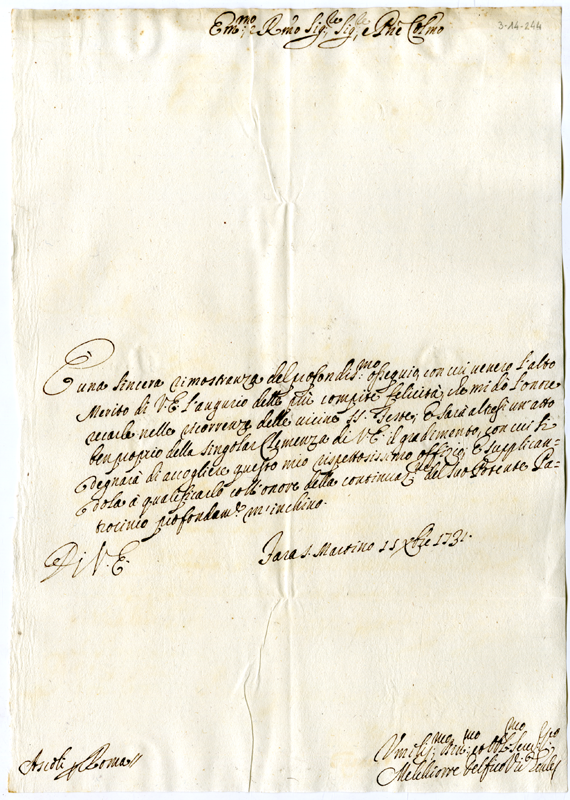 Em.mo e R.mo Sig.re Sig.re e Pñe Col.mo
3-14-244
È una sincera dimostranza del profondis.mo ossequio, con cui venero l'alto
Merito di V.E. l'augurio delle più compite felicità, che mi do l'onore
recarle nella ricorrenza delle vicine SS. Feste; e sarà altresì un atto
ben proprio della singolar Clemenza di V.E. il gradimento, con cui si
degnarà di accogliere questo mio rispettosissimo officio; e supplican-
dola à qualificarlo coll'onore della continuaz.ne del suo Potente Pa-
trocinio profondam.te m'inchino.
Di V.E.
Fara S. Martino 15 Xbre 1731.
Ascoli p Roma
Umilis.mo Div.mo et Obl.mo Serv.re
Melchiorre Delfico